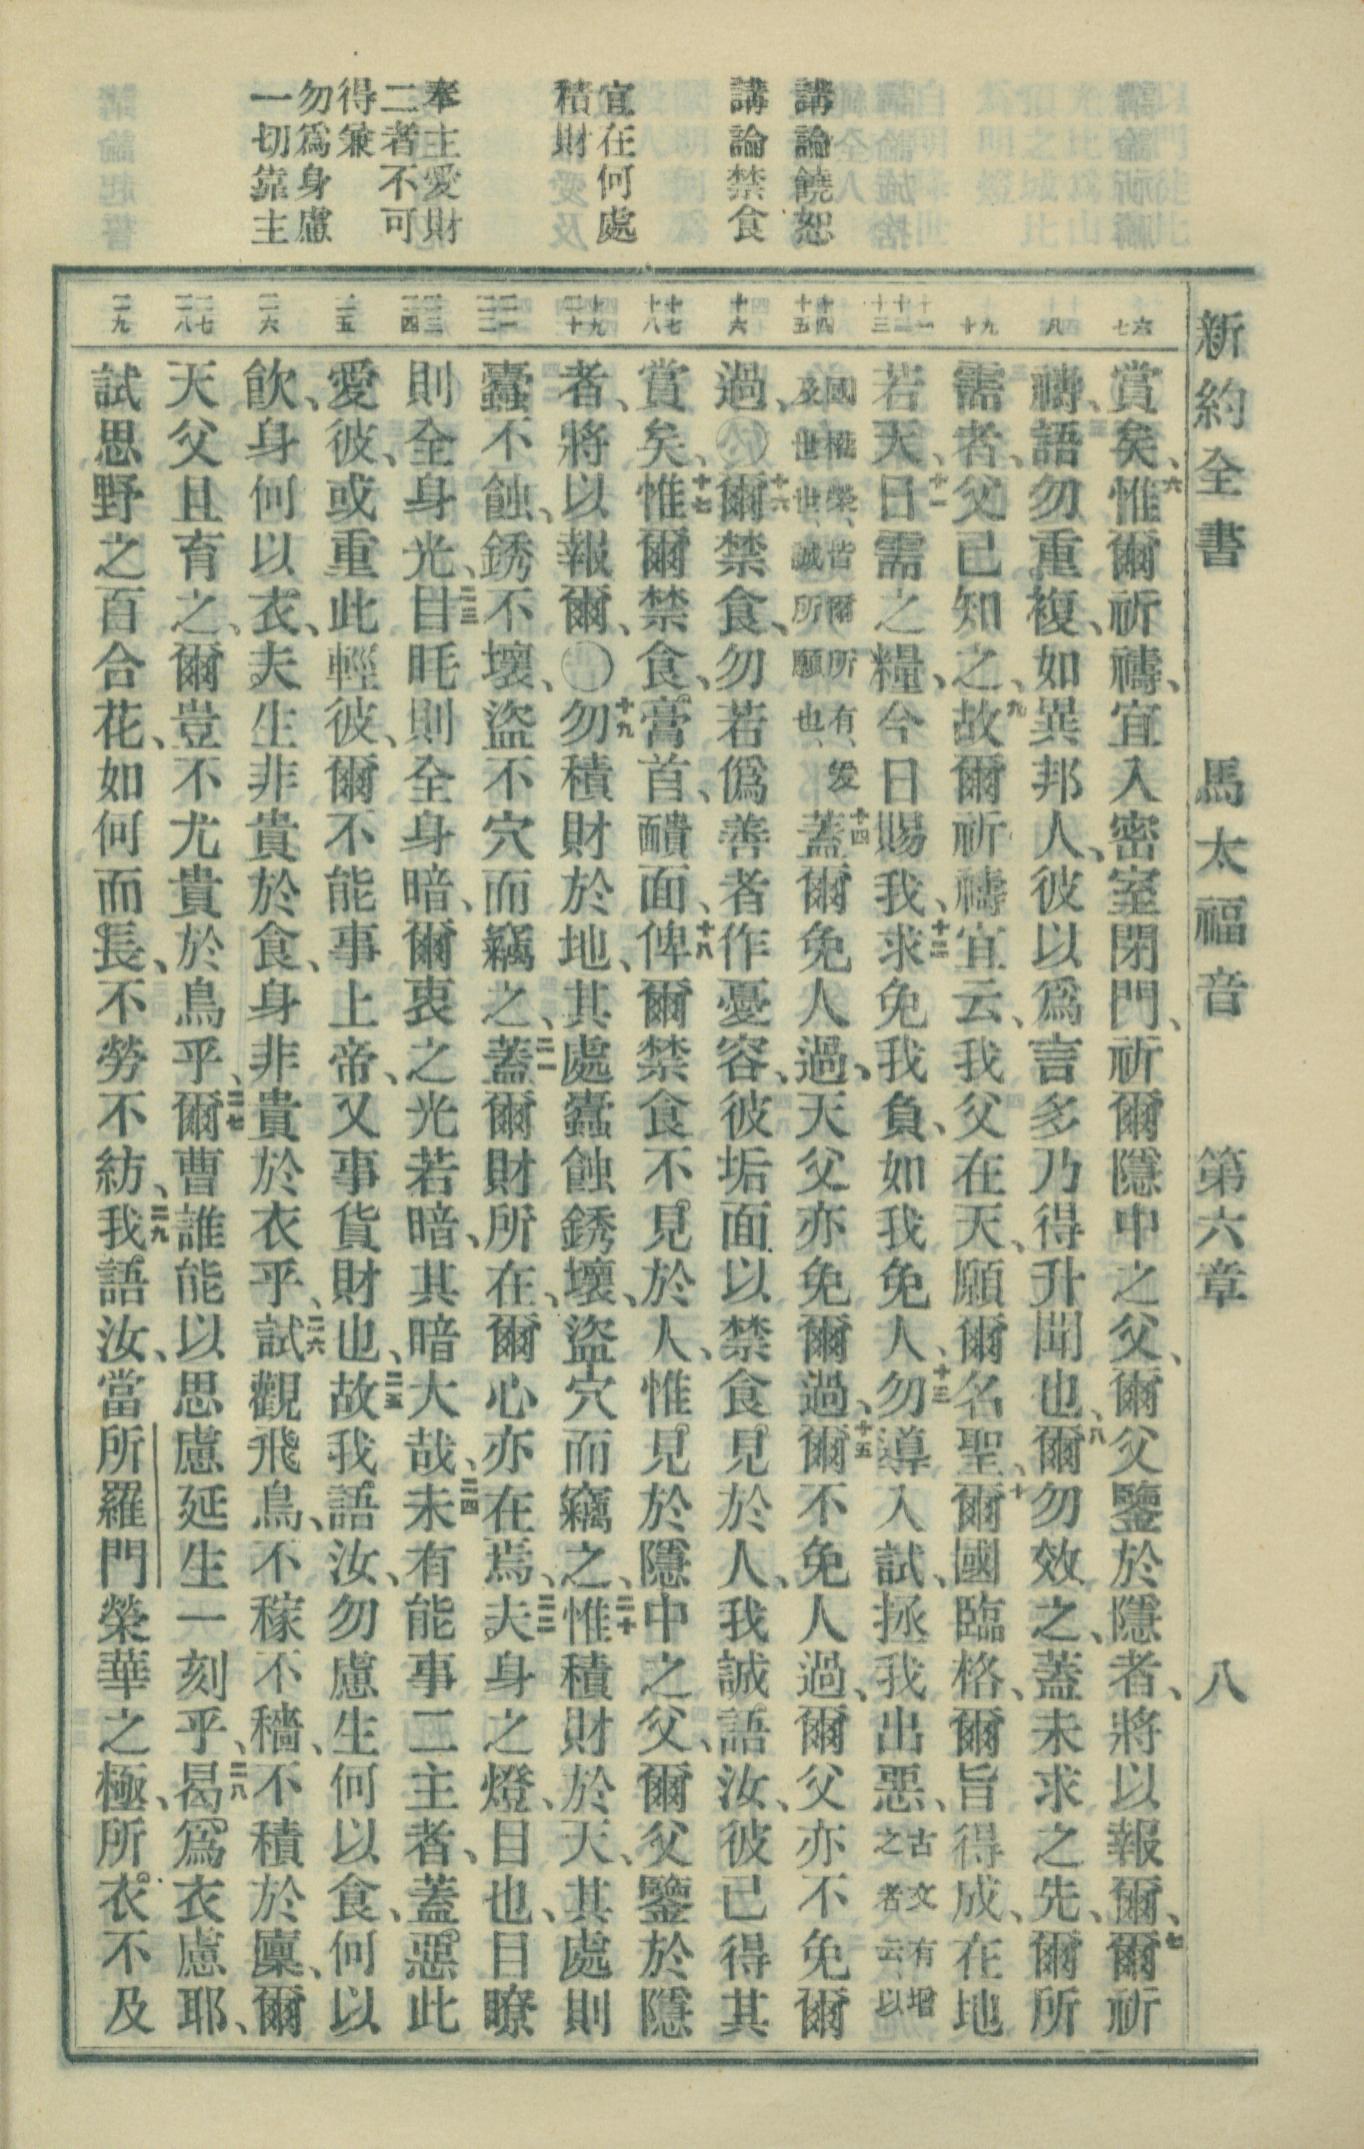 新約全書 馬太福音 第六章 八
講論饒恕
講論禁食
宜在何處
積財
奉主愛財
二者不可
得兼
勿爲身慮
一切靠主
六 七 八 九 十 十一 十二 十三 十四 十五 十六 十七 十八 十九 二十 二一 二二 二三 二四 二五 二六 二七 二八 二九
賞矣、六惟爾祈禱、宜入密室閉門、祈爾隱中之父、爾父鑒於隱者、將以報爾、七爾祈
禱、語勿重複、如異邦人、彼以爲言多乃得升聞也、八爾勿效之、蓋未求之先、爾所
需者、父已知之、九故爾祈禱宜云、我父在天、願爾名聖、十爾國臨格、爾旨得成、在地
若天、十一日需之糧、今日賜我、十二求免我負、如我免人、十三勿導入試、拯我出惡、古文有增之者云、以
國權榮、皆爾所有、爰及世世、誠所願也、十四蓋爾免人過、天父亦免爾過、十五爾不免人過、爾父亦不免爾
過、〇十六爾禁食、勿若僞善者作憂容、彼垢面以禁食見於人、我誠語汝、彼已得其
賞矣、十七惟爾禁食、膏首、靧面、十八俾爾禁食不見於人、惟見於隱中之父、爾父鑒於隱
者、將以報爾、〇十九勿積財於地、其處蠹蝕銹壞、盜穴而竊之、二十惟積財於天、其處則
蠹不蝕、銹不壞、盜不穴而竊之、二一蓋爾財所在、爾心亦在焉、二二夫身之燈、目也、目瞭
則全身光、二三目眊則全身暗、爾衷之光若暗、其暗大哉、二四未有能事二主者、蓋惡此
愛彼、或重此輕彼、爾不能事上帝、又事貨財也、二五故我語汝、勿慮生何以食、何以
飲、身何以衣、夫生非貴於食、身非貴於衣乎、二六試觀飛鳥、不稼不穡、不積於廩、爾
天父且育之、爾豈不尤貴於鳥乎、二七爾曹誰能以思慮延生一刻乎、二八曷爲衣慮耶、
試思野之百合花、如何而長、不勞不紡、二九我語汝、當所羅門榮華之極、所衣不及